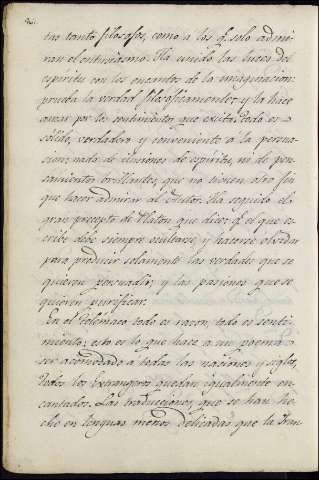 tar tanto filosofos, como a los q.e solo admi-
ran el entusiasmo. Ha unido las luces del
espiritu con los encantos de la imaginacion:
prueba la verdad filosoficamente, y la hace
amar por los sentimientos que exita: todo es
sólido, verdadero y conveniente a la persua-
sion: nada de ilusiones de espiritu, ni de pen-
samientos brillantes, que no tienen otro fin
que hacer admirar al Autor. Ha seguido el
gran precepto de Platon que dice, q.e el que es-
cribe debe siempre ocultarse, y hacerse olvidar
para producir solamente las verdades que se
quieren persuadir; y las pasiones que se
quieren purificar.
En el Telemaco todo es razon, todo es senti-
miento: esto es lo que hace a un poema
ser acomodado a todas las naciones y siglos,
todos los Extrangeros quedan igualmente en-
cantados. Las traducciones, que se han he-
cho en lenguas menos delicadas que la Fran